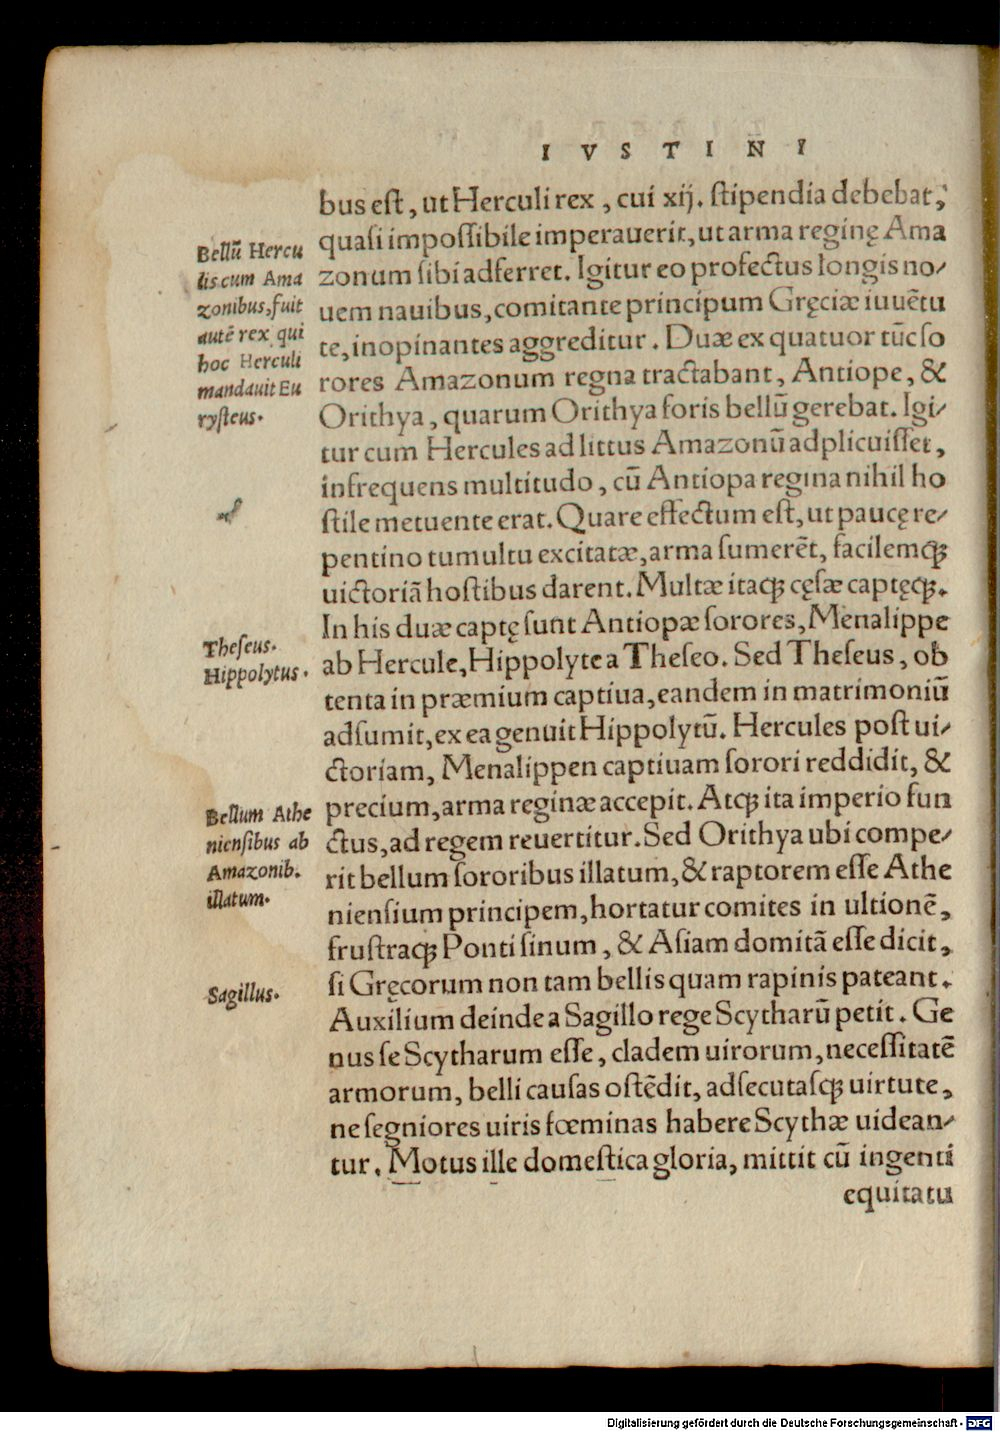 IVSTINI
bus est, ut Herculi rex, cui xij. stipendia debebat,
quasi impossibile imperauerit, ut arma reginę Ama
zonum sibi adferret. Igitur eo profectus longis no/
uem nauibus, comitante principum Gręciæ iuuētu
te, inopinantes aggreditur. Duæ ex quatuor tūc so
rores Amazonum regna tractabant, Antiope, &
Orithya, quarum Orithya foris bellū gerebat. Igi/
tur cum Hercules ad littus Amazonū adplicuisset,
infrequens multitudo, cū Antiopa regina nihil ho
stile metuente erat. Quare effectum est, ut paucę re/
pentino tumultu excitatæ, arma sumerēt, facilemq́
uictoriā hostibus darent. Multæ itaq́ cęsæ captęq́.
In his duæ captę sunt Antiopæ sorores, Menalippe
ab Hercule, Hippolyte a Theseo. Sed Theseus, ob
tenta in præmium captiua, eandem in matrimoniū
adsumit, ex ea genuit Hippolytū. Hercules post ui/
ctoriam, Menalippen captiuam sorori reddidit, &
precium, arma reginæ accepit. Atq́ ita imperio fun
ctus, ad regem reuertitur. Sed Orithya ubi compe/
rit bellum sororibus illatum, & raptorem esse Athe
niensium principem, hortatur comites in ultionē,
frustraq́ Ponti sinum, & Asiam domitā esse dicit,
si Gręcorum non tam bellis quam rapinis pateant.
Auxilium deinde a Sagillo rege Scytharū petit. Ge
nus se Scytharum esse, cladem uirorum, necessitatē
armorum, belli causas ostēdit, adsecutasq́ uirtute,
ne segniores uiris fœminas habere Scythæ uidean/
tur. Motus ille domestica gloria, mittit cū ingenti
equitatu
Bellū Hercu
lis cum Ama
zonibus, fuit
autē rex qui
hoc Herculi
mandauit Eu
rysteus.
Theseus.
Hippolytus.
Bellum Athe
niensibus ab
Amazonib.
illatum.
Sagillus.
Digitalisierung gefördert durch die Deutsche Forschungsgemeinschaft - DFG